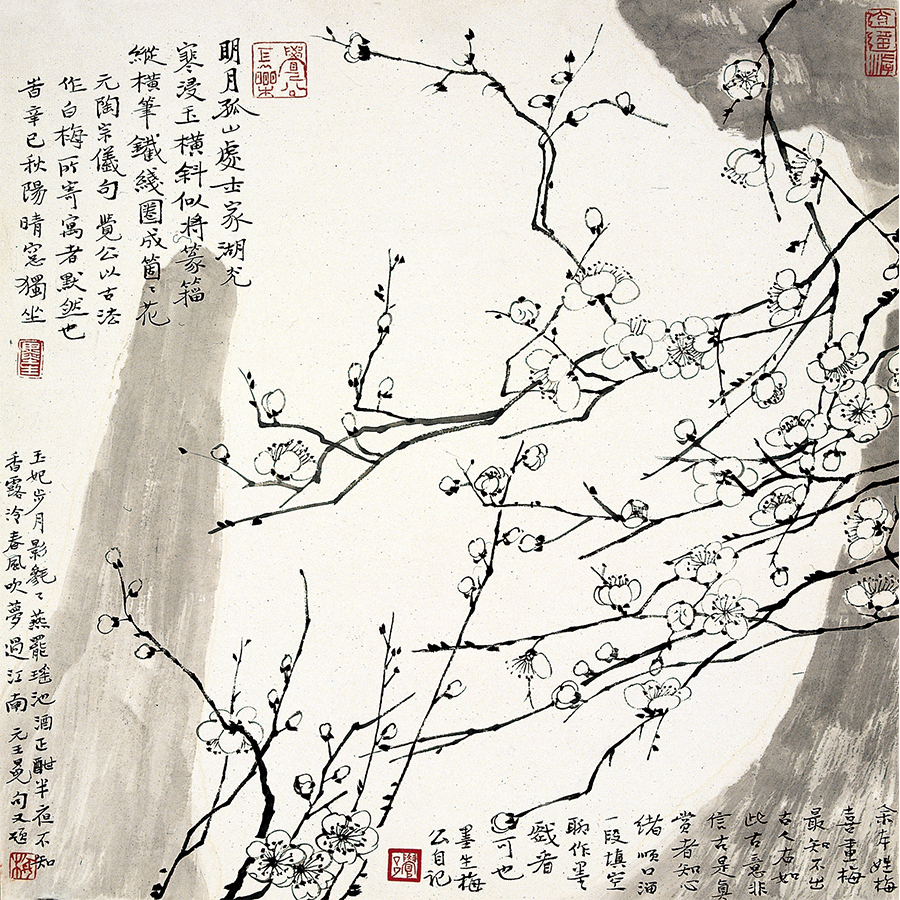 明月孤山處士家湖光
寒浸玉橫斜似將篆籀
縱橫筆鐵綫圈成箇〻花
元陶宗儀句 覺公以古法
作白梅所寄寓者默然也
昔辛巳秋陽晴窓獨坐
玉妃步月影毿〻燕罷瑶池酒正酣半夜不知
香露冷春風吹夢過江南 元王冕句又題
余本姓梅
喜畫梅
最知不出
古人右如
此古意非
信古是真
賞者知心
緒順口溜
一段填空
聊作墨
戲看
可也
墨生梅
公自記